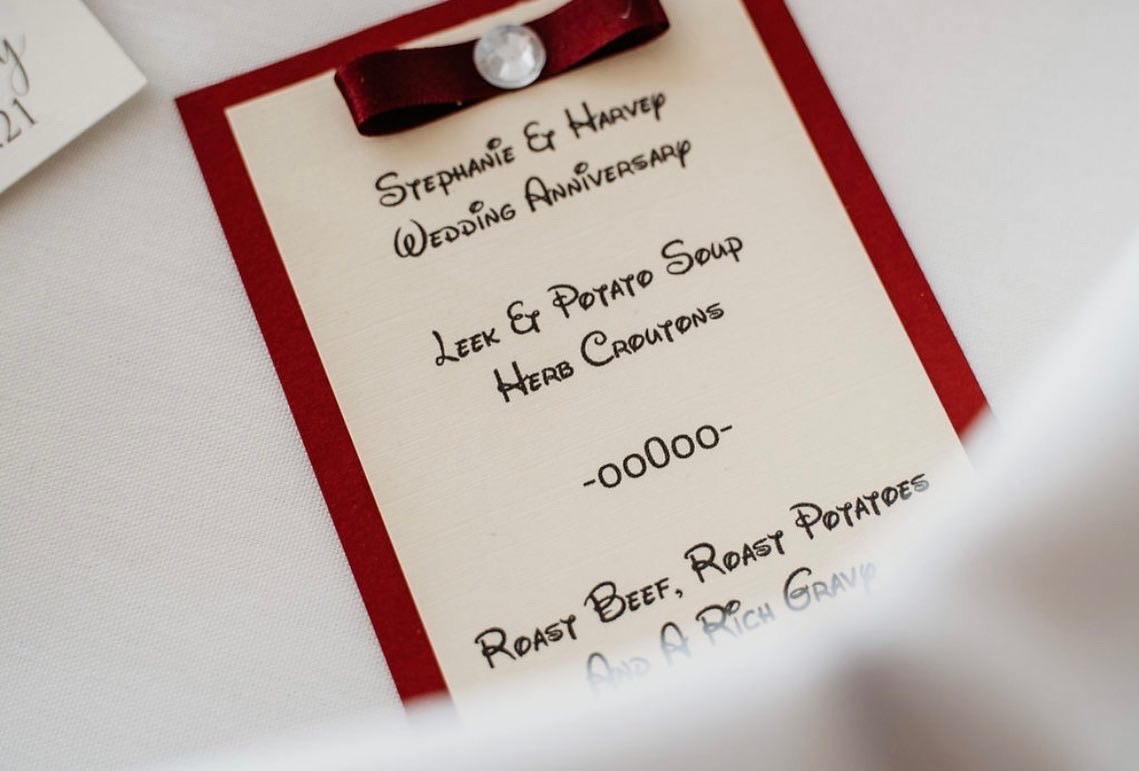 y
21
Stephanie & Harvey
Wedding Anniversary
Leek & Potato Soup
Herb Croutons
-ooOoo-
Roast Beef, Roast Potatoes
And A Rich Gravy